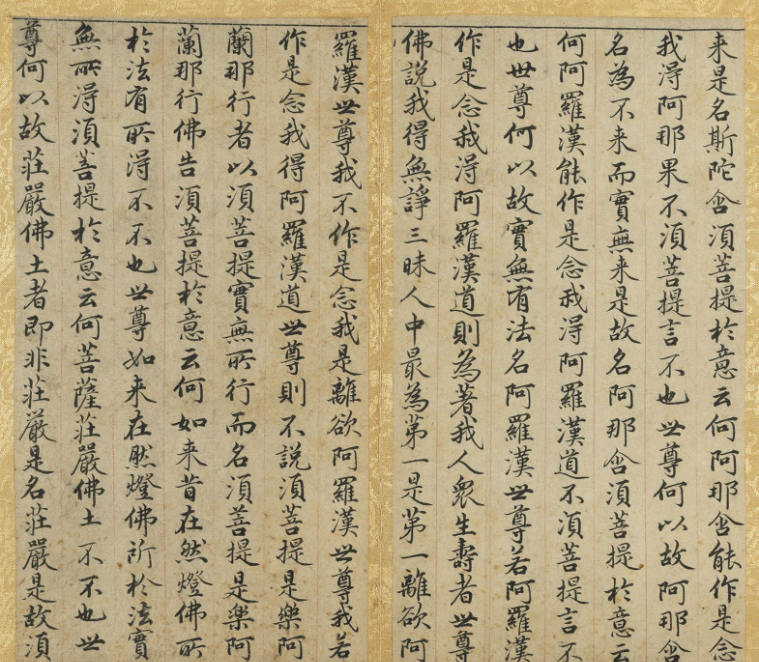 来是名斯陀含須菩提於意云何阿那含能作是念
我得阿那果不須菩提言不也世尊何以故阿那含
名為不来而實無来是故名阿那含須菩提於意云
何阿羅漢能作是念我得阿羅漢道不須菩提言不
也世尊何以故實無有法名阿羅漢世尊若阿羅漢
作是念我得阿羅漢道則為著我人衆生壽者世尊
佛說我得無諍三昧人中最為第一是第一離欲阿
羅漢世尊我不作是念我是離欲阿羅漢世尊我若
作是念我得阿羅漢道世尊則不說須菩提是樂阿
蘭那行者以須菩提實無所行而名須菩提是樂阿
蘭那行佛告須菩提於意云何如来昔在然燈佛所
於法有所得不不也世尊如来在然燈佛所於法實
無所得須菩提於意云何菩薩莊嚴佛土不不也世
尊何以故莊嚴佛土者即非莊嚴是名莊嚴是故須